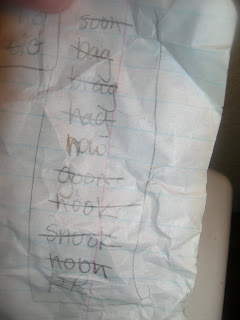 soon
bag
brag
nag
now
goon
nook
snuck
noon